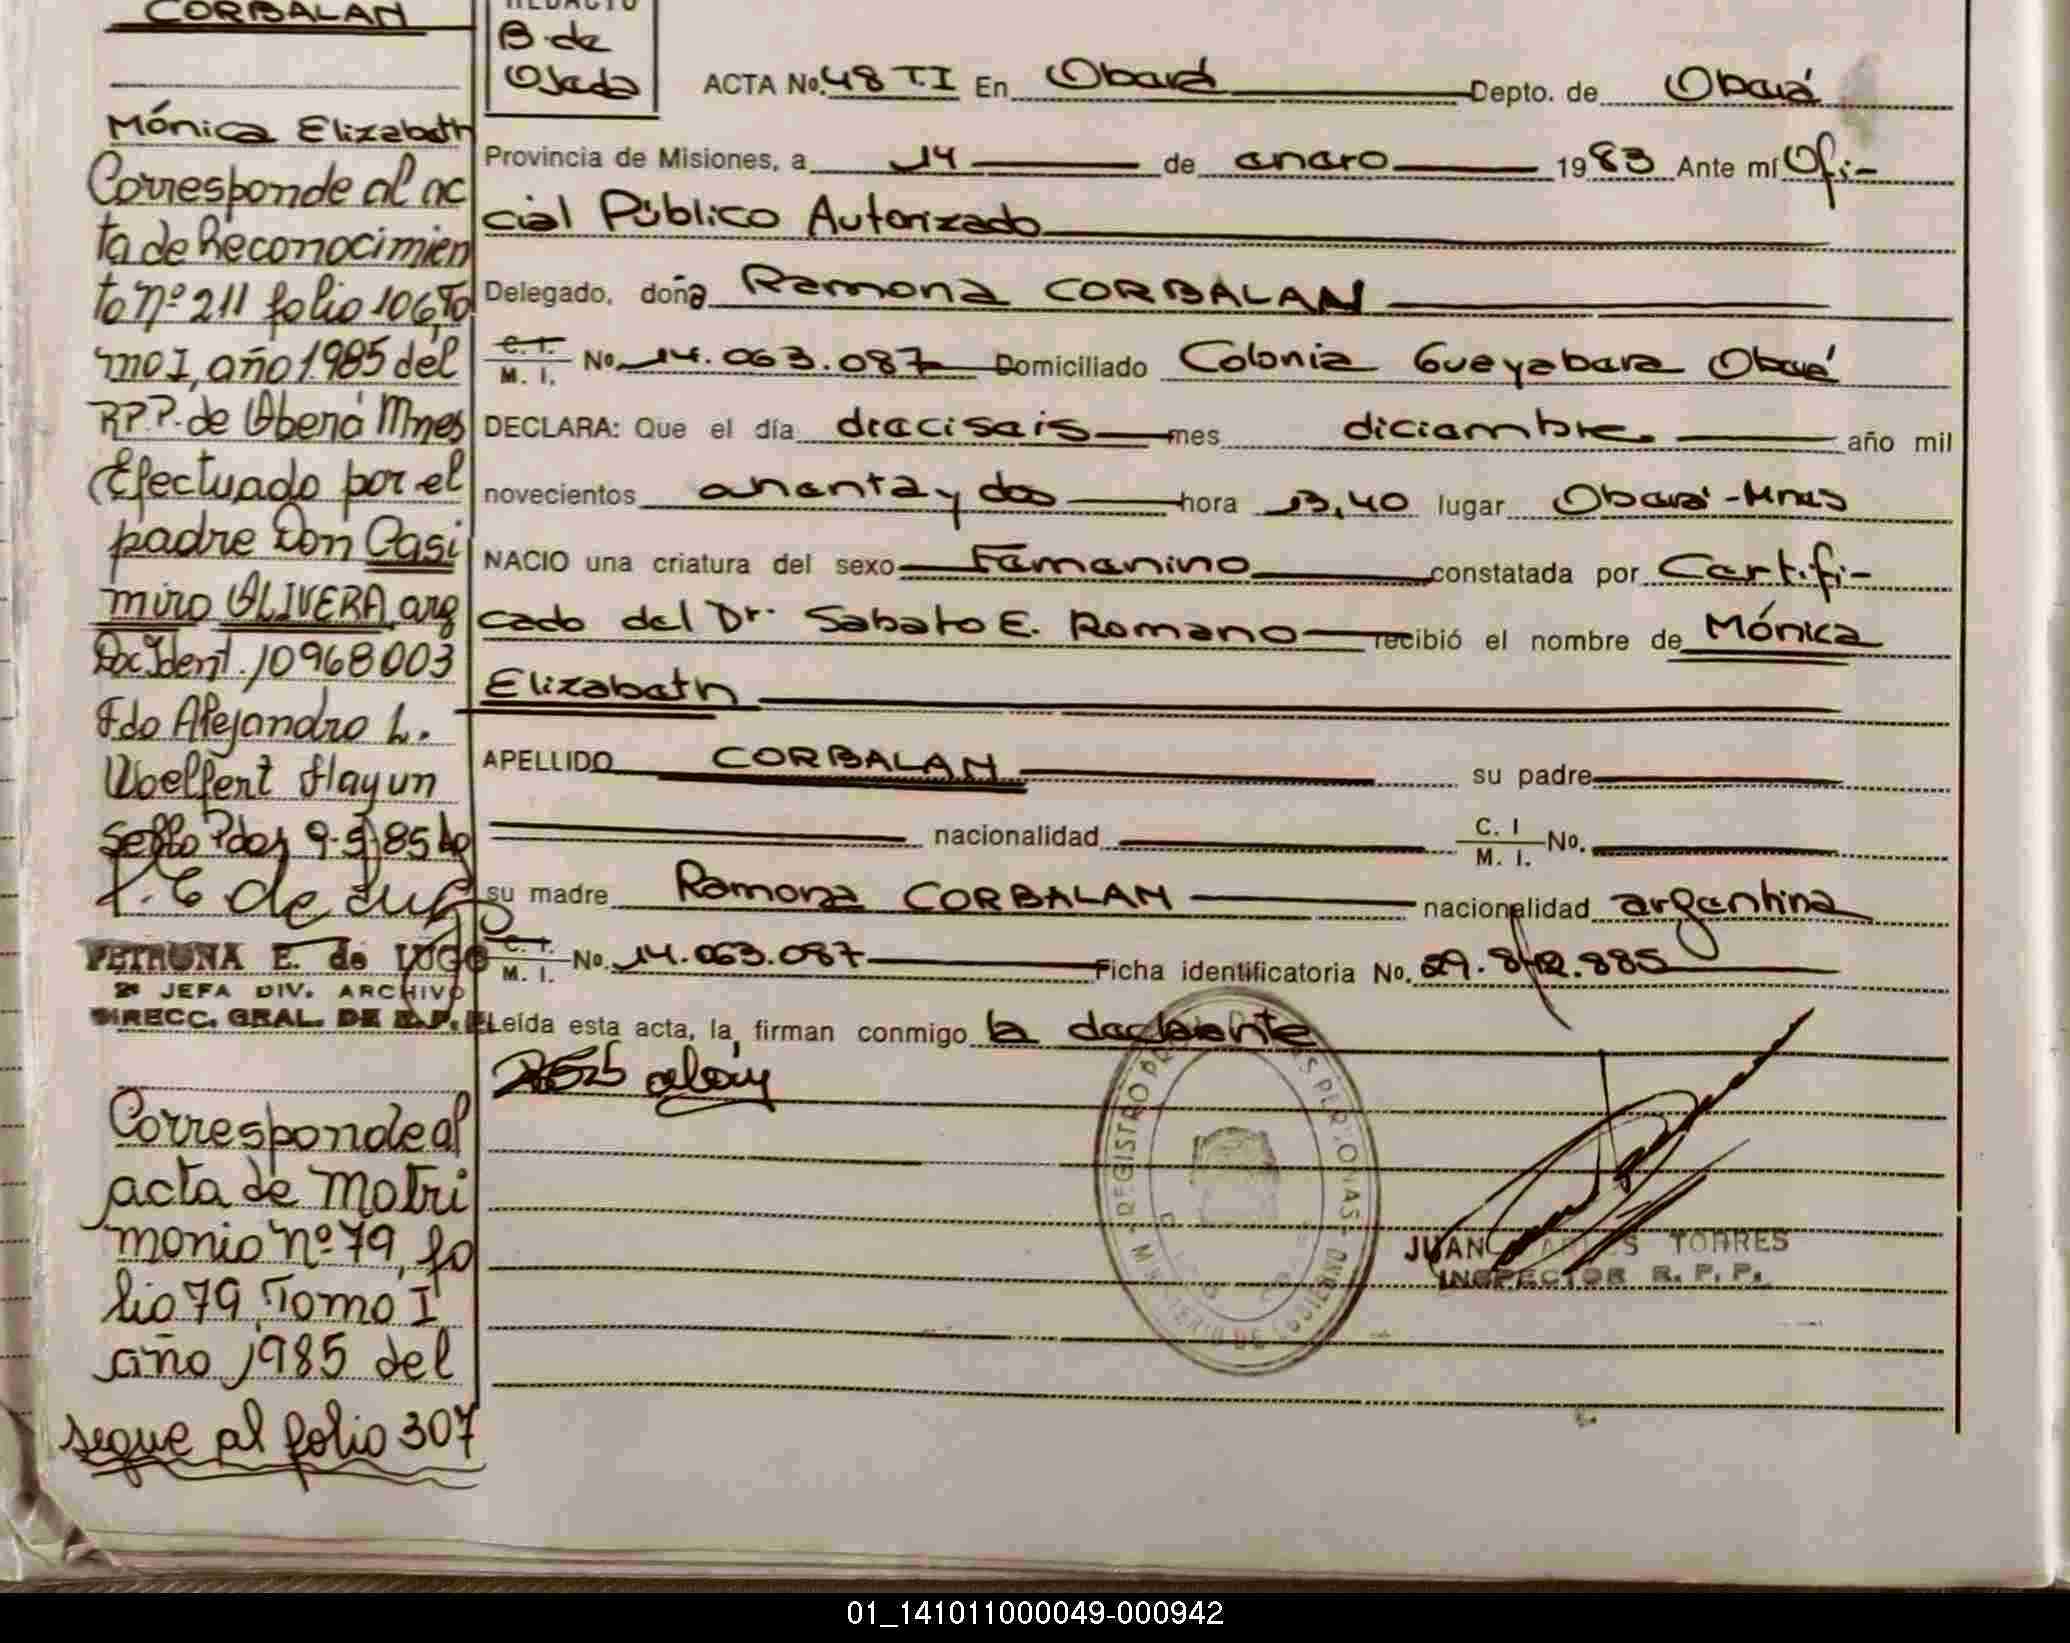 CORBALAN
Mónica Elizabeth
Corresponde al ac
ta de Reconocimien
to nº 211 folio 106, To
mo I, año 1985 del
R.P.P. de Oberá Mnes
Efectuado por el
padre Don Casi
miro OLIVERA, arg
Doc Ident. 10968003
Fdo Alejandro L.
Woelfert Hay un
sello Pdos 9-5-85
P. E de Lugo
PETRONA E. de LUGO
2ª JEFA DIV. ARCHIVO
DIRECC. GRAL. DE R.P.P.
Corresponde al
acta de Matri
monio nº 79, fo
lio 79, Tomo I,
año 1985 del
sigue al folio 307
REDACTO
B. de
Ojeda
ACTA No. 48 T.I En Oberá Depto. de Oberá
Provincia de Misiones, a 14 de enero 1983 Ante mí Ofi-
cial Público Autorizado
Delegado, doña Ramona CORBALAN
C. I. M. I. No. 14.063.087 Domiciliado Colonia Gueyabera Oberá
DECLARA: Que el día dieciseis mes diciembre año mil
novecientos ochenta y dos hora 13,40 lugar Oberá-Mnes
NACIO una criatura del sexo Femenino constatada por Certifi-
cado del Dr. Sabato E. Romano recibió el nombre de Mónica
Elizabeth
APELLIDO CORBALAN su padre
nacionalidad C. I M. I. No.
su madre Ramona CORBALAN nacionalidad argentina
C. I. M. I. No. 14.063.087 Ficha identificatoria No. 29.812.885
Leída esta acta, la firman conmigo la declarante
REGISTRO PROVINCIAL DE LAS PERSONAS
MINISTERIO DE GOBIERNO
JUAN CARLOS TORRES
INSPECTOR R. P. P.
01_141011000049-000942